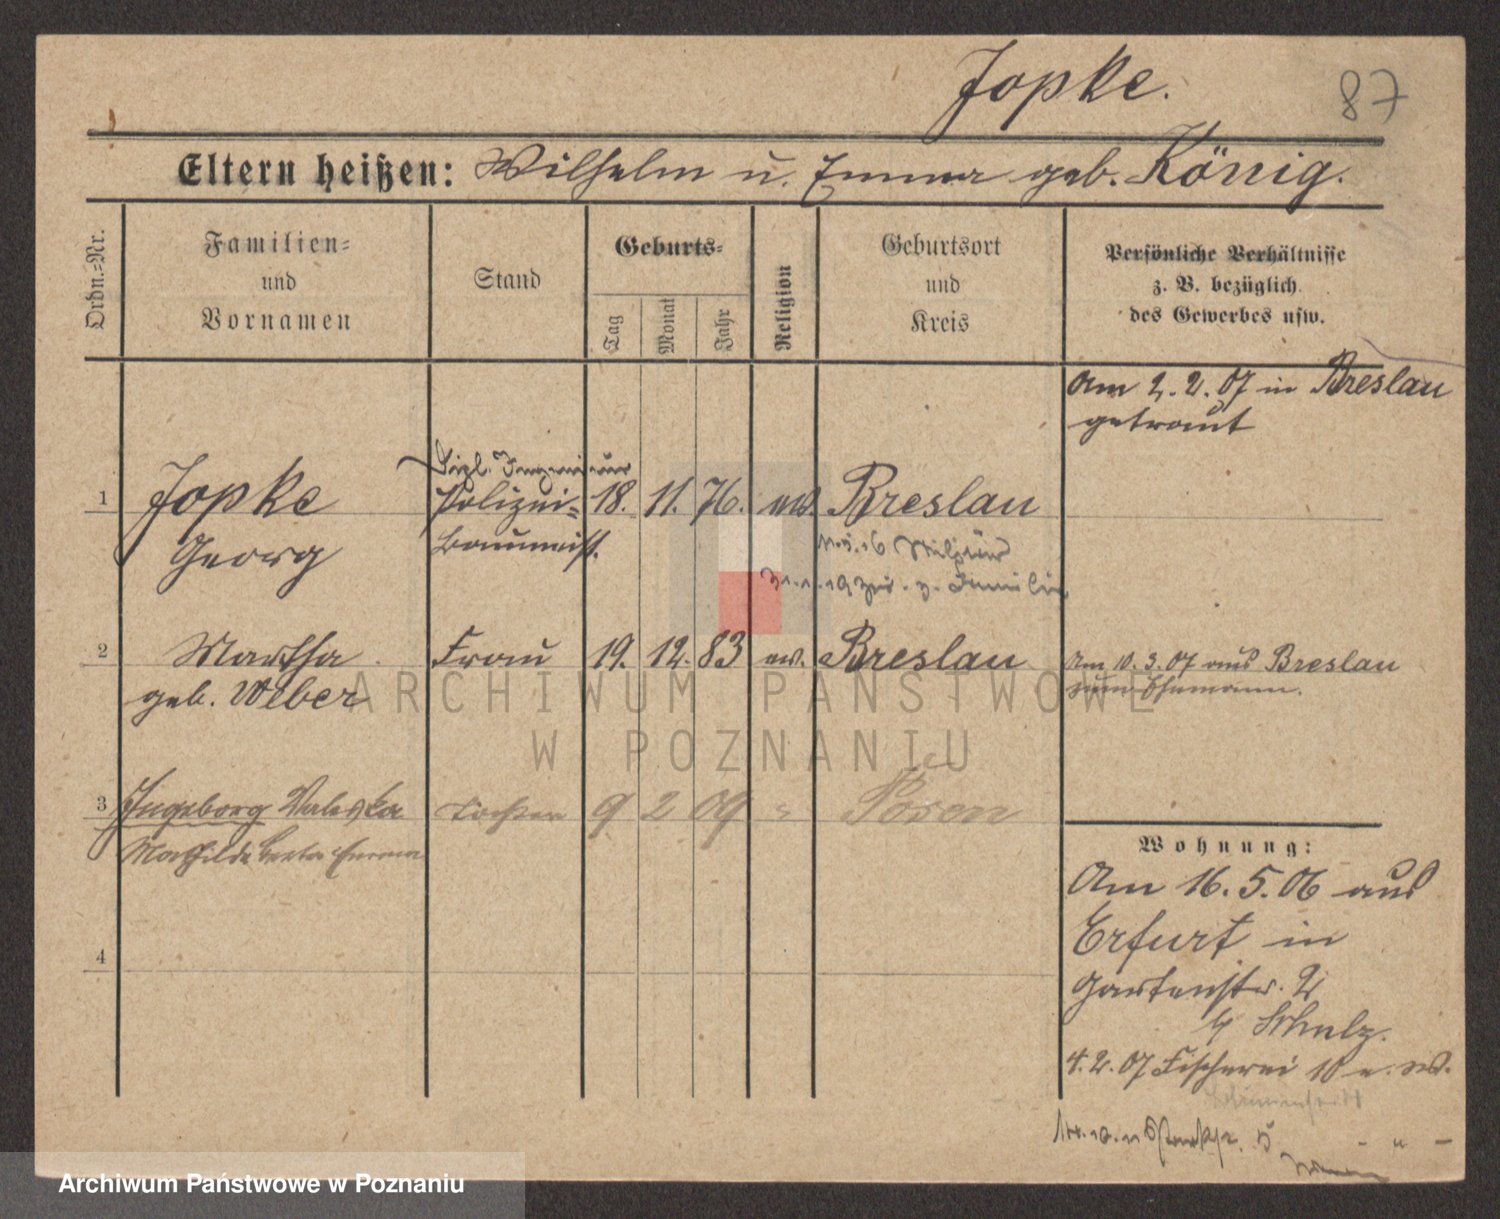 Jopke.
87
Eltern heißen: Wilhelm u. Emma geb. König.
Ordn.-Nr.
Familien-
und
Vornamen
Stand
Geburts-
Tag
Monat
Jahr
Religion
Geburtsort
und
Kreis
Persönliche Verhältnisse
z. B. bezüglich
des Gewerbes usw.
Am 2.2.07 in Breslau
getraut
Dipl. Ingenieur
1 Jopke Polizei- 18. 11. 76. ev. Breslau
Georg Baumeist.
16 Militär
19 zur. z. Familie
2 Martha Frau 19. 12. 83 ev. Breslau
geb. Weber
Am 10.3.07 aus Breslau
zum Ehemann.
3 Ingeborg Valeska Tochter 9 2 09 " Posen
Mathilde Berta Emma
4
Wohnung:
Am 16.5.06 aus
Erfurt in
Gartenstr. 2
b/ Schulz.
4.2.07 Fischerei 10 e. W.
- " -
ARCHIWUM PAŃSTWOWE
W POZNANIU
Archiwum Państwowe w Poznaniu